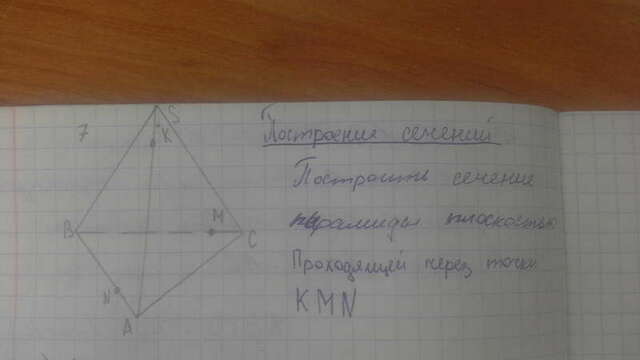 7
S
K
B
M
C
N
A
Построение сечений
Построить сечение
пирамиды плоскостью
Проходящей через точки
KMN